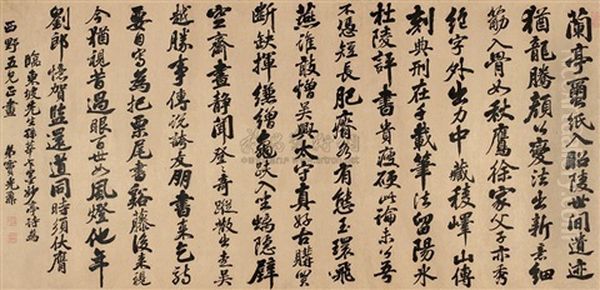 蘭亭蠒紙入昭陵世間遺迹
猶龍騰顏公變法出新意細
筋入骨如秋鷹徐家父子亦秀
絕字外出力中藏稜嶧山傳
刻典刑在千載筆法留陽氷
杜陵評書貴瘦硬此論未公吾
不憑短長肥瘠各有態玉環飛
燕誰敢憎吳興太守真好古購買
斷缺揮縑繒龜趺入坐螭隱壁
空齋晝靜聞登登奇蹤散出走吳
越勝事傳說誇友朋書來乞詩
要自寫為把栗尾書谿藤後來視
今猶視昔過眼百世如風燈他年
劉郎憶賀監還道同時須伏膺
臨東坡先生孫莘老求墨妙亭詩為
西野五兄正
弟竇光鼐